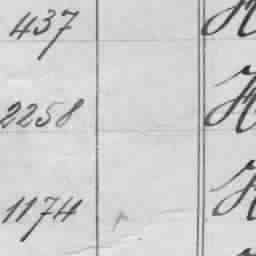 437 H
2258 H
1174 H